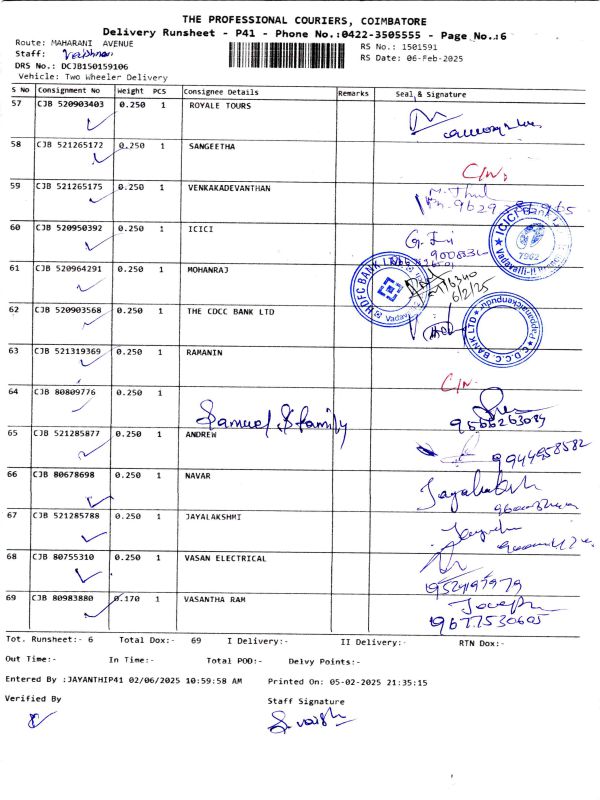 THE PROFESSIONAL COURIERS, COIMBATORE
Delivery Runsheet - P41 - Phone No.:0422-3505555 - Page No.:6
Route: MAHARANI AVENUE
RS No.: 1501591
Staff:
RS Date: 06-Feb-2025
DRS No.: DCJB150159106
Vehicle: Two Wheeler Delivery
S No Consignment No Weight PCS Consignee Details Remarks Seal & Signature
57 CJB 520903403 0.250 1 ROYALE TOURS
58 CJB 521265172 0.250 1 SANGEETHA
C/N.
59 CJB 521265175 0.250 1 VENKAKADEVANTHAN
60 CJB 520950392 0.250 1 ICICI
ICICI Bank
61 CJB 520964291 0.250 1 MOHANRAJ
HDFC BANK LTD
6/2/25
62 CJB 520903568 0.250 1 THE CDCC BANK LTD
C.D.C.C. BANK LTD
63 CJB 521319369 0.250 1 RAMANIN
C/N.
64 CJB 80809776 0.250 1
Samuel & family
9566263084
65 CJB 521285877 0.250 1 ANDREW
9944958582
66 CJB 80678698 0.250 1 NAVAR
67 CJB 521285788 0.250 1 JAYALAKSHMI
68 CJB 80755310 0.250 1 VASAN ELECTRICAL
69 CJB 80983880 0.170 1 VASANTHA RAM
9677530605
Tot. Runsheet:- 6 Total Dox:- 69 I Delivery:- II Delivery:- RTN Dox:-
Out Time:- In Time:- Total POD:- Delvy Points:-
Entered By :JAYANTHIP41 02/06/2025 10:59:58 AM Printed On: 05-02-2025 21:35:15
Verified By Staff Signature